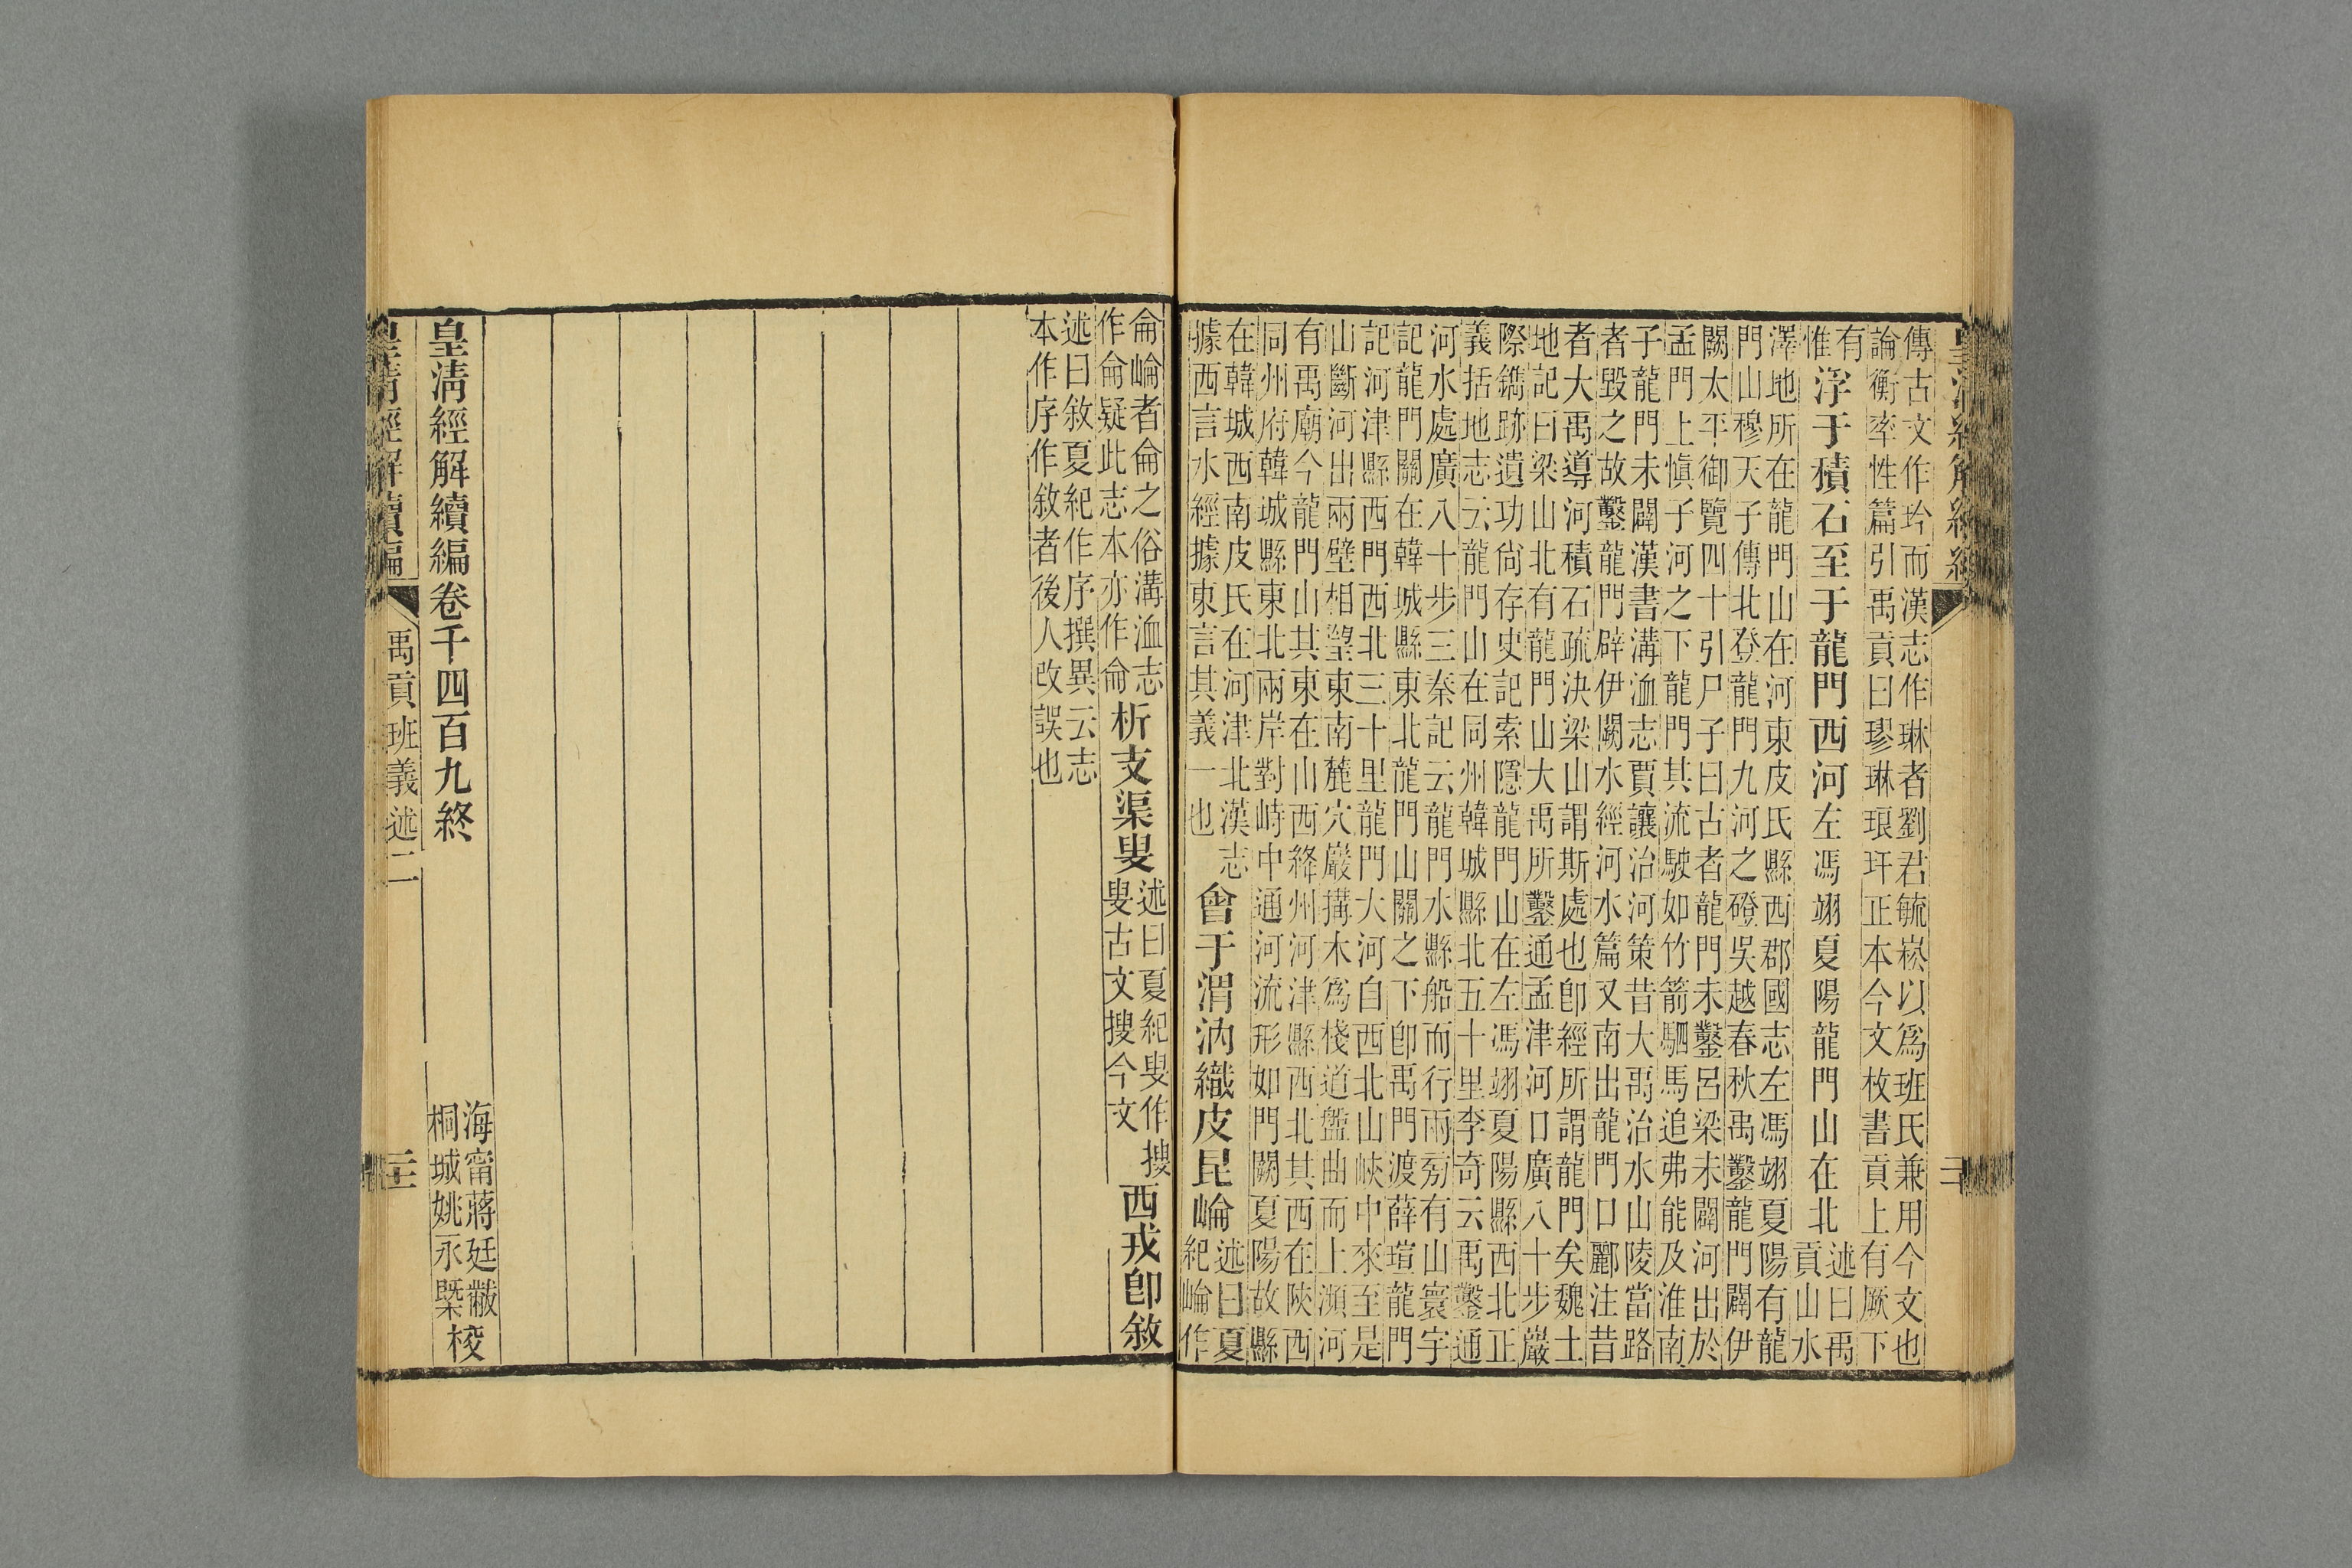 傳古文作玪而漢志作琳者劉君毓崧以爲班氏兼用今文也
論衡率性篇引禹貢曰璆琳琅玕正本今文枚書貢上有厥下
有
惟
浮于積石至于龍門西河左馮翊夏陽龍門山在北
述曰禹
貢山水
澤地所在龍門山在河東皮氏縣西郡國志左馮翊夏陽有龍
門山穆天子傳北登龍門九河之磴吳越春秋禹鑿龍門闢伊
闕太平御覽四十引尸子曰古者龍門未鑿呂梁未闢河出於
孟門上愼子河之下龍門其流駛如竹箭駟馬追弗能及淮南
子龍門未闢漢書溝洫志賈讓治河策昔大禹治水山陵當路
者毀之故鑿龍門辟伊闕水經河水篇又南出龍門口酈注昔
者大禹導河積石疏決梁山謂斯處也卽經所謂龍門矣魏土
地記曰梁山北有龍門山大禹所鑿通孟津河口廣八十步巖
際鐫跡遺功尙存史記索隱龍門山在左馮翊夏陽縣西北正
義括地志云龍門山在同州韓城縣北五十里李奇云禹鑿通
河水處廣八十步三秦記云龍門水縣船而行兩旁有山寰宇
記龍門關在韓城縣東北龍門山關之下卽禹門渡薛瑄龍門
記河津縣西門西北三十里龍門大河自西北山峽中來至是
山斷河出兩壁相望東南麓穴巖搆木爲棧道盤曲而上瀕河
有禹廟今龍門山其東在山西絳州河津縣西北其西在陝西
同州府韓城縣東北兩岸對峙中通河流形如門闕夏陽故縣
在韓城西南皮氏在河津北漢志
據西言水經據東言其義一也
會于渭汭織皮昆崘
述曰夏
紀崘作
侖崘者侖之俗溝洫志
作侖疑此志本亦作侖
析支渠叟
述曰夏紀叟作搜
叟古文搜今文
西戎卽敘
述曰敘夏紀作序撰異云志
本作序作敘者後人改誤也
皇淸經解續編卷千四百九終
海甯蔣廷黻
桐城姚永槩
校
皇淸經解續編
禹貢班義述二